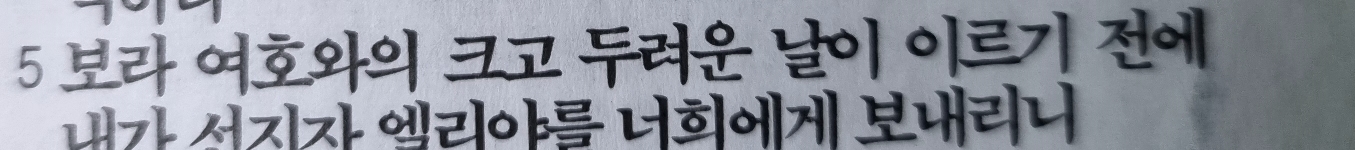 5 보라 여호와의 크고 두려운 날이 이르기 전에
내가 선지자 엘리야를 너희에게 보내리니